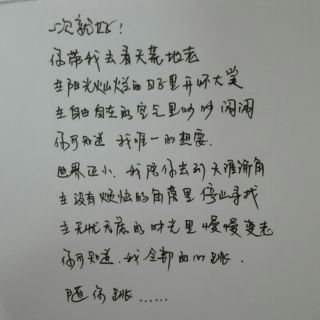 一次就好!
你带我去看天荒地老
在阳光灿烂的日子里开怀大笑
在自由自在的空气里吵吵闹闹
你可知道 我唯一的想要.
世界还小.我陪你去到天涯海角
在没有烦恼的角落里停止寻找
在无忧无虑的时光里慢慢变老
你可知道.我全部的心跳.
随你跳......